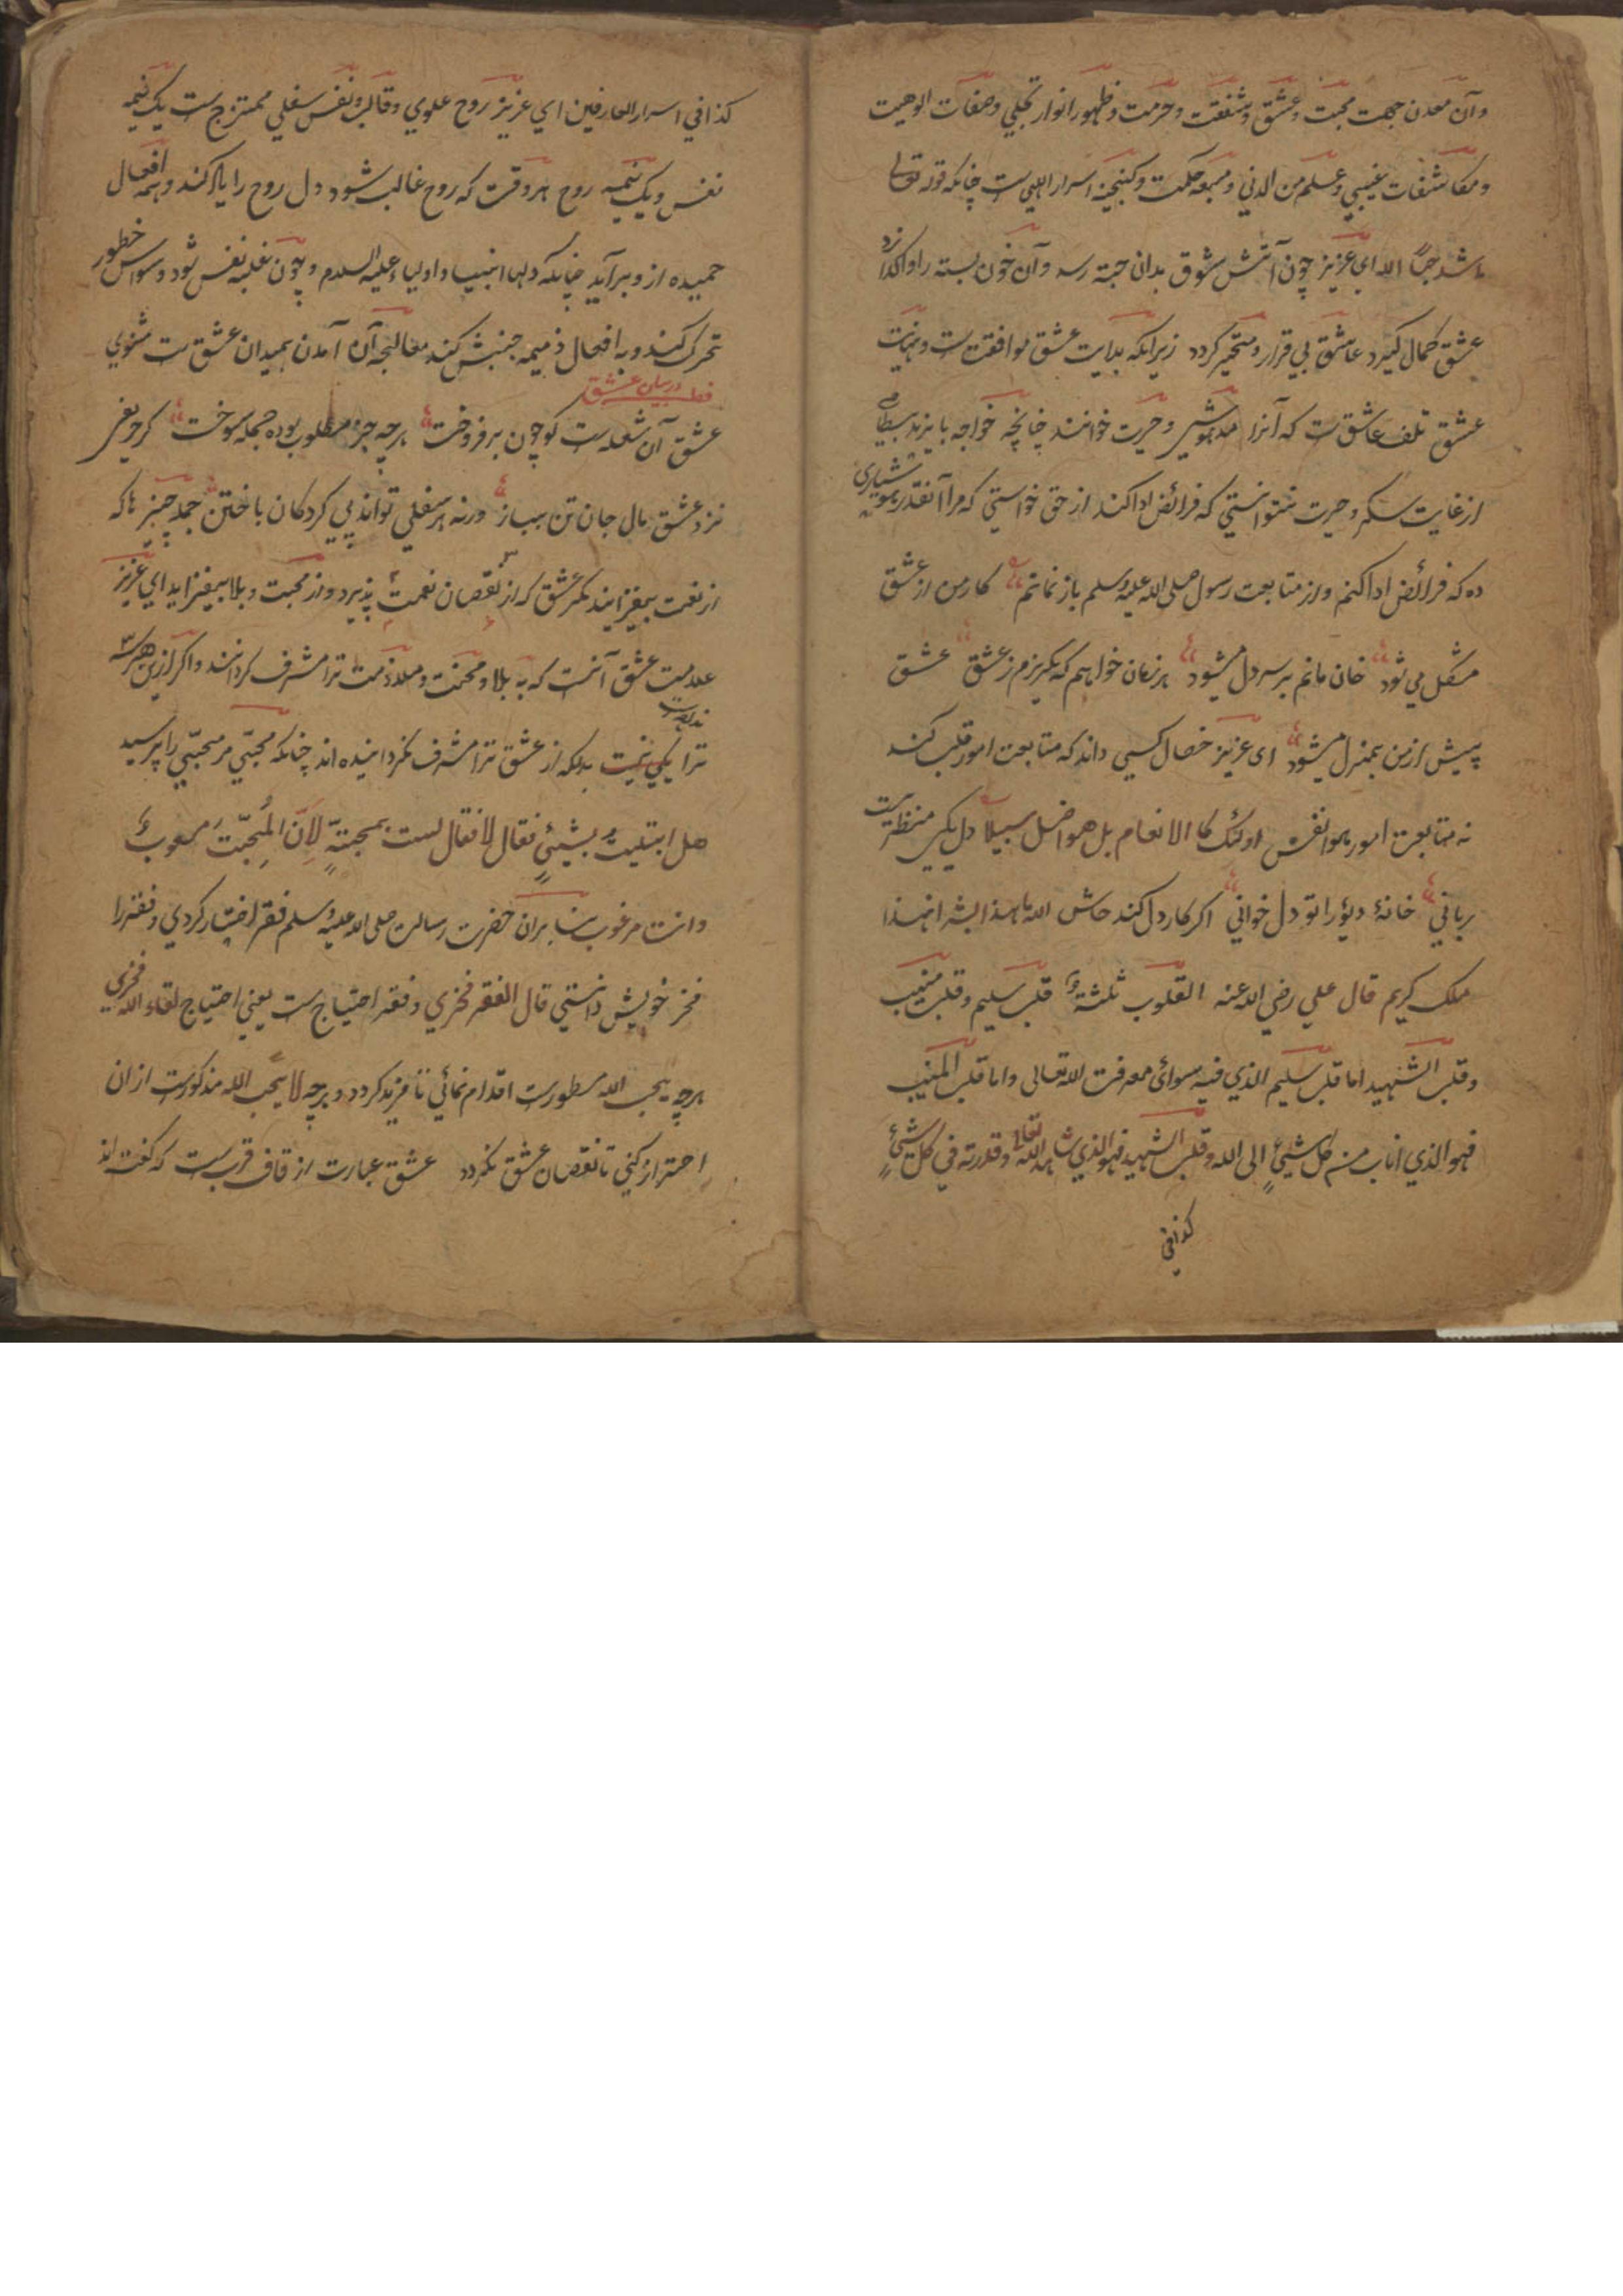 وآن معدن جهت محبت وعشق وشفقت وحرمت وظهور انوار تجلي وصفات الوهيت
ومكاشفات غيبي وعلم من الدني ومنبعه حكمت وكنجينه اسرار الهي ست چنانكه قوله تعالى
اشد حبّاً لله اي عزيز چون آتش شوق بدان حبة رسد وآن خون بسته را واكدازد
عشق كمال كيرد عاشق بي قرار ومتحير كردد زيرانكه بدايت عشق موافقت ست ونهايت
عشق تلف عاشق ست كه آنرا مدهوشي وحيرت خوانند چنانچه خواجه بايزيد بسطامي
از غايت سكر وحيرت نتوانستي كه فرائض ادا كند از حق خواستي كه مرا آنقدر هوشياري
ده كه فرائض ادا كنم واز متابعت رسول صلى الله عليه وسلم باز نمانم كار من از عشق
مشكل مي شود خان مانم بر سر دل ميشود هر زمان خواهم كه بكريزم ز عشق عشق
پيش ازمن بمنزل ميشود اى عزيز خصال كسي داند كه متابعت امور قلب كند
نه متابعت امور هوا نفس اولئك كا الانعام بل هم اضل سبيلا دل يكي منظريست
رباني خانۀ ديو را تو دل خواني اكر كار دل كند حاش الله ما هذا بشر ان هذا
ملك كريم قال علي رضي الله عنه القلوب ثلثة قلب سليم وقلب منيب
وقلب الشهيد اما قلب سليم الذي فيه سوائ معرفت الله تعالى واما قلب المنيب
فهو الذي اناب من كل شيئ الى الله وقلب الشهيد فهو الذي شاهد الله تعالى وقدرته في كل شيئ
كذافي
كذا في اسرار العارفين اي عزيز روح علوي وقالب ونفس سفلي ممتزج ست يك نيمه
نفس ويك نيمه روح هر وقت كه روح غالب شود دل روح را پاك كند وهمه افعال
حميده ازو برآيد چنانكه دلها انبيا واوليا عليه السلام وچون غلبه نفس شود وسواس خطور
تحرك كند وبه افعال ذميمه جنبش كند معالجه آن آمدن بميدان عشق ست مثنوي
فصل در بيان عشق
عشق آن شعله ست كو چون بر فروخت هر چه جز مطلوب بوده جمله سوخت كر حريفي
نزد عشق مال جان تن بباز ورنه هر سفلي تواند پي كرد كان باختن جمله چيز ها كه
از نعمت بيفزايند مكر عشق كه از نقصان نعمت پذيرد واز محبت وبلا بيفزايد اي عزيز
علامت عشق آنست كه به بلا ومحنت وملامت ترا مشرف كردانند واكر ازين هر سه
ترا يكي نيست بدانكه از عشق ترا مشرف نكردانيده اند چنانكه محبّي مر محبّي را پرسيد
هل ابتليت بشيئ فقال لا فقال لست بمحبته لانّ المحبّت
وانت مرغوب بنابران حضرت رسالت صلى الله عليه وسلم فقر اختيار كردي وفقر را
فخر خويش دانستي قال الفقر فخري وفقر احتياج ست يعني احتياج لقاء الله فخري
هر چه يحب الله مسطور ست اقدام نمائي تا مزيد كردد وهر چه لا يحب الله مذكور ست ازان
احتراز كني تا نقصان عشق نكردد عشق عبارت از قاف قرب ست كه كفت اند